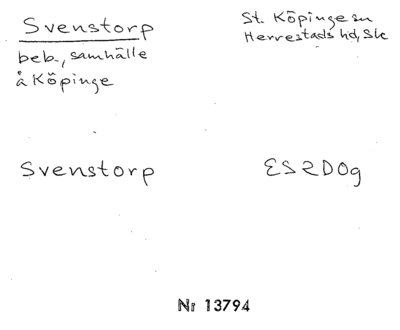 Svenstorp
beb., samhälle
å Köpinge
St. Köpinge sn
Herrestads hd, Sk
Svenstorp
ES2D0g
Nr 13794